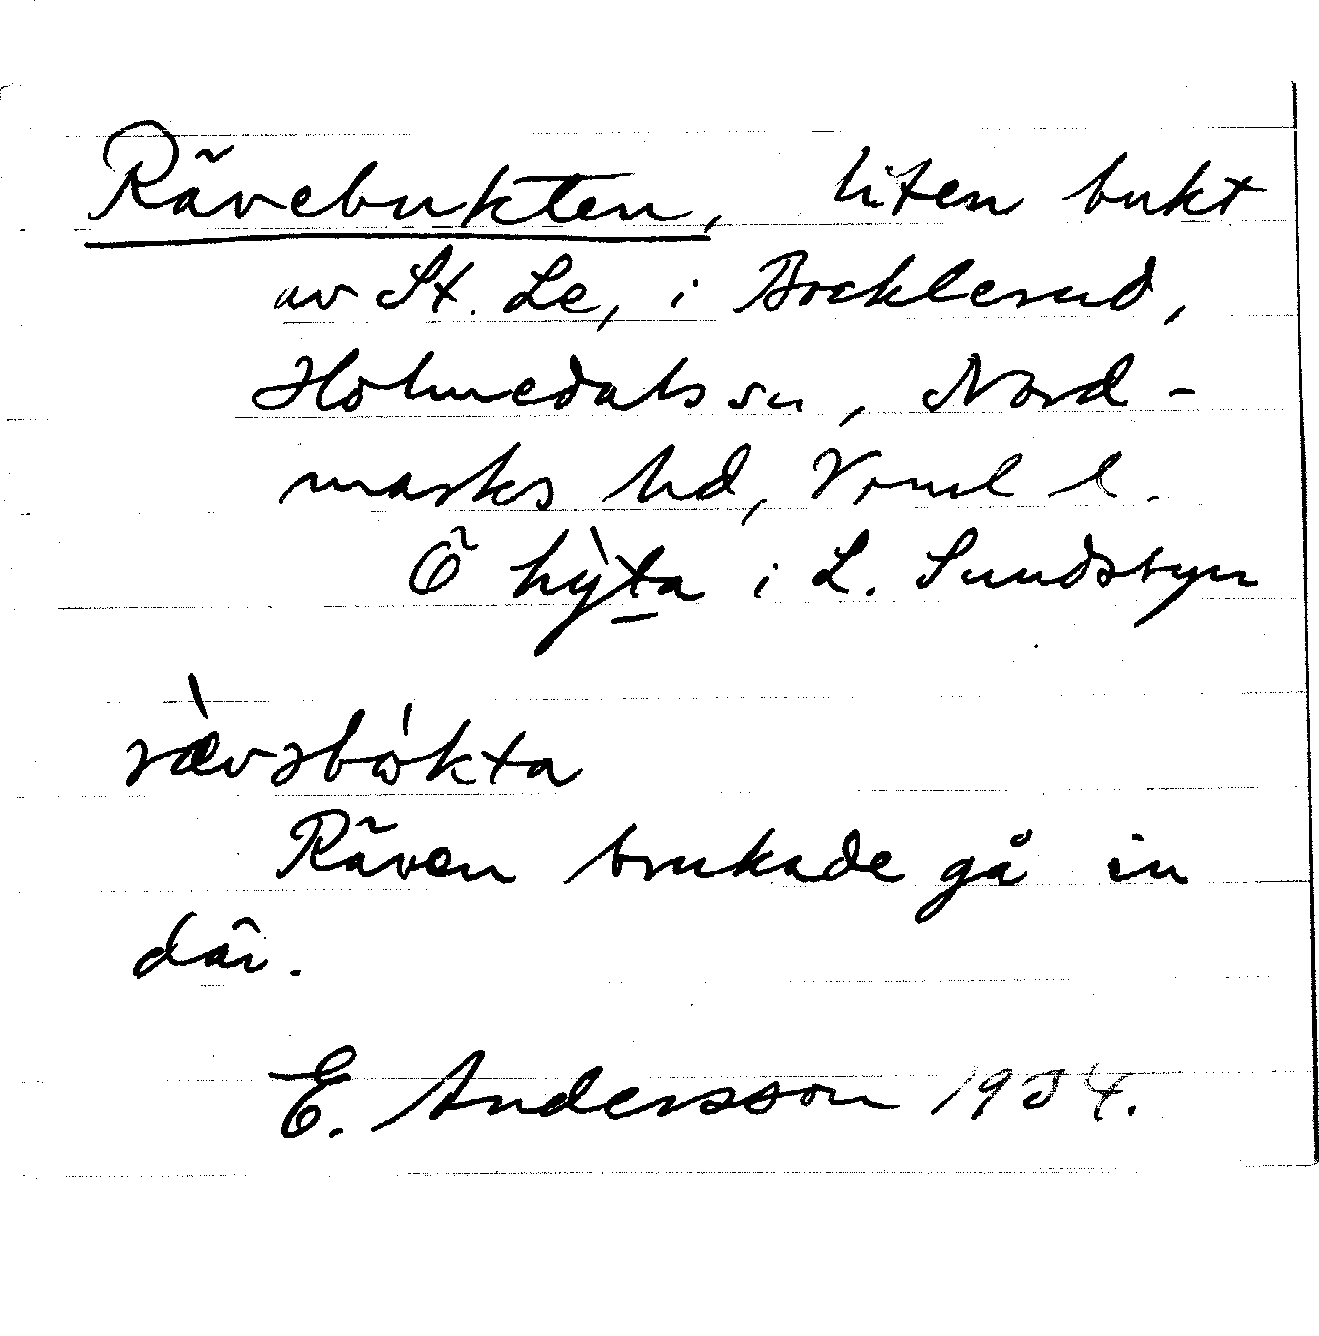 Rävebukten, liten bukt
av St. Le, i Bocklerud,
Holmedals sn, Nord-
marks hd, Vrml l.
Ö hỳta i L. Sundsbyn
rævabòkta
Räven brukade gå in
där.
E. Andersson 1934.